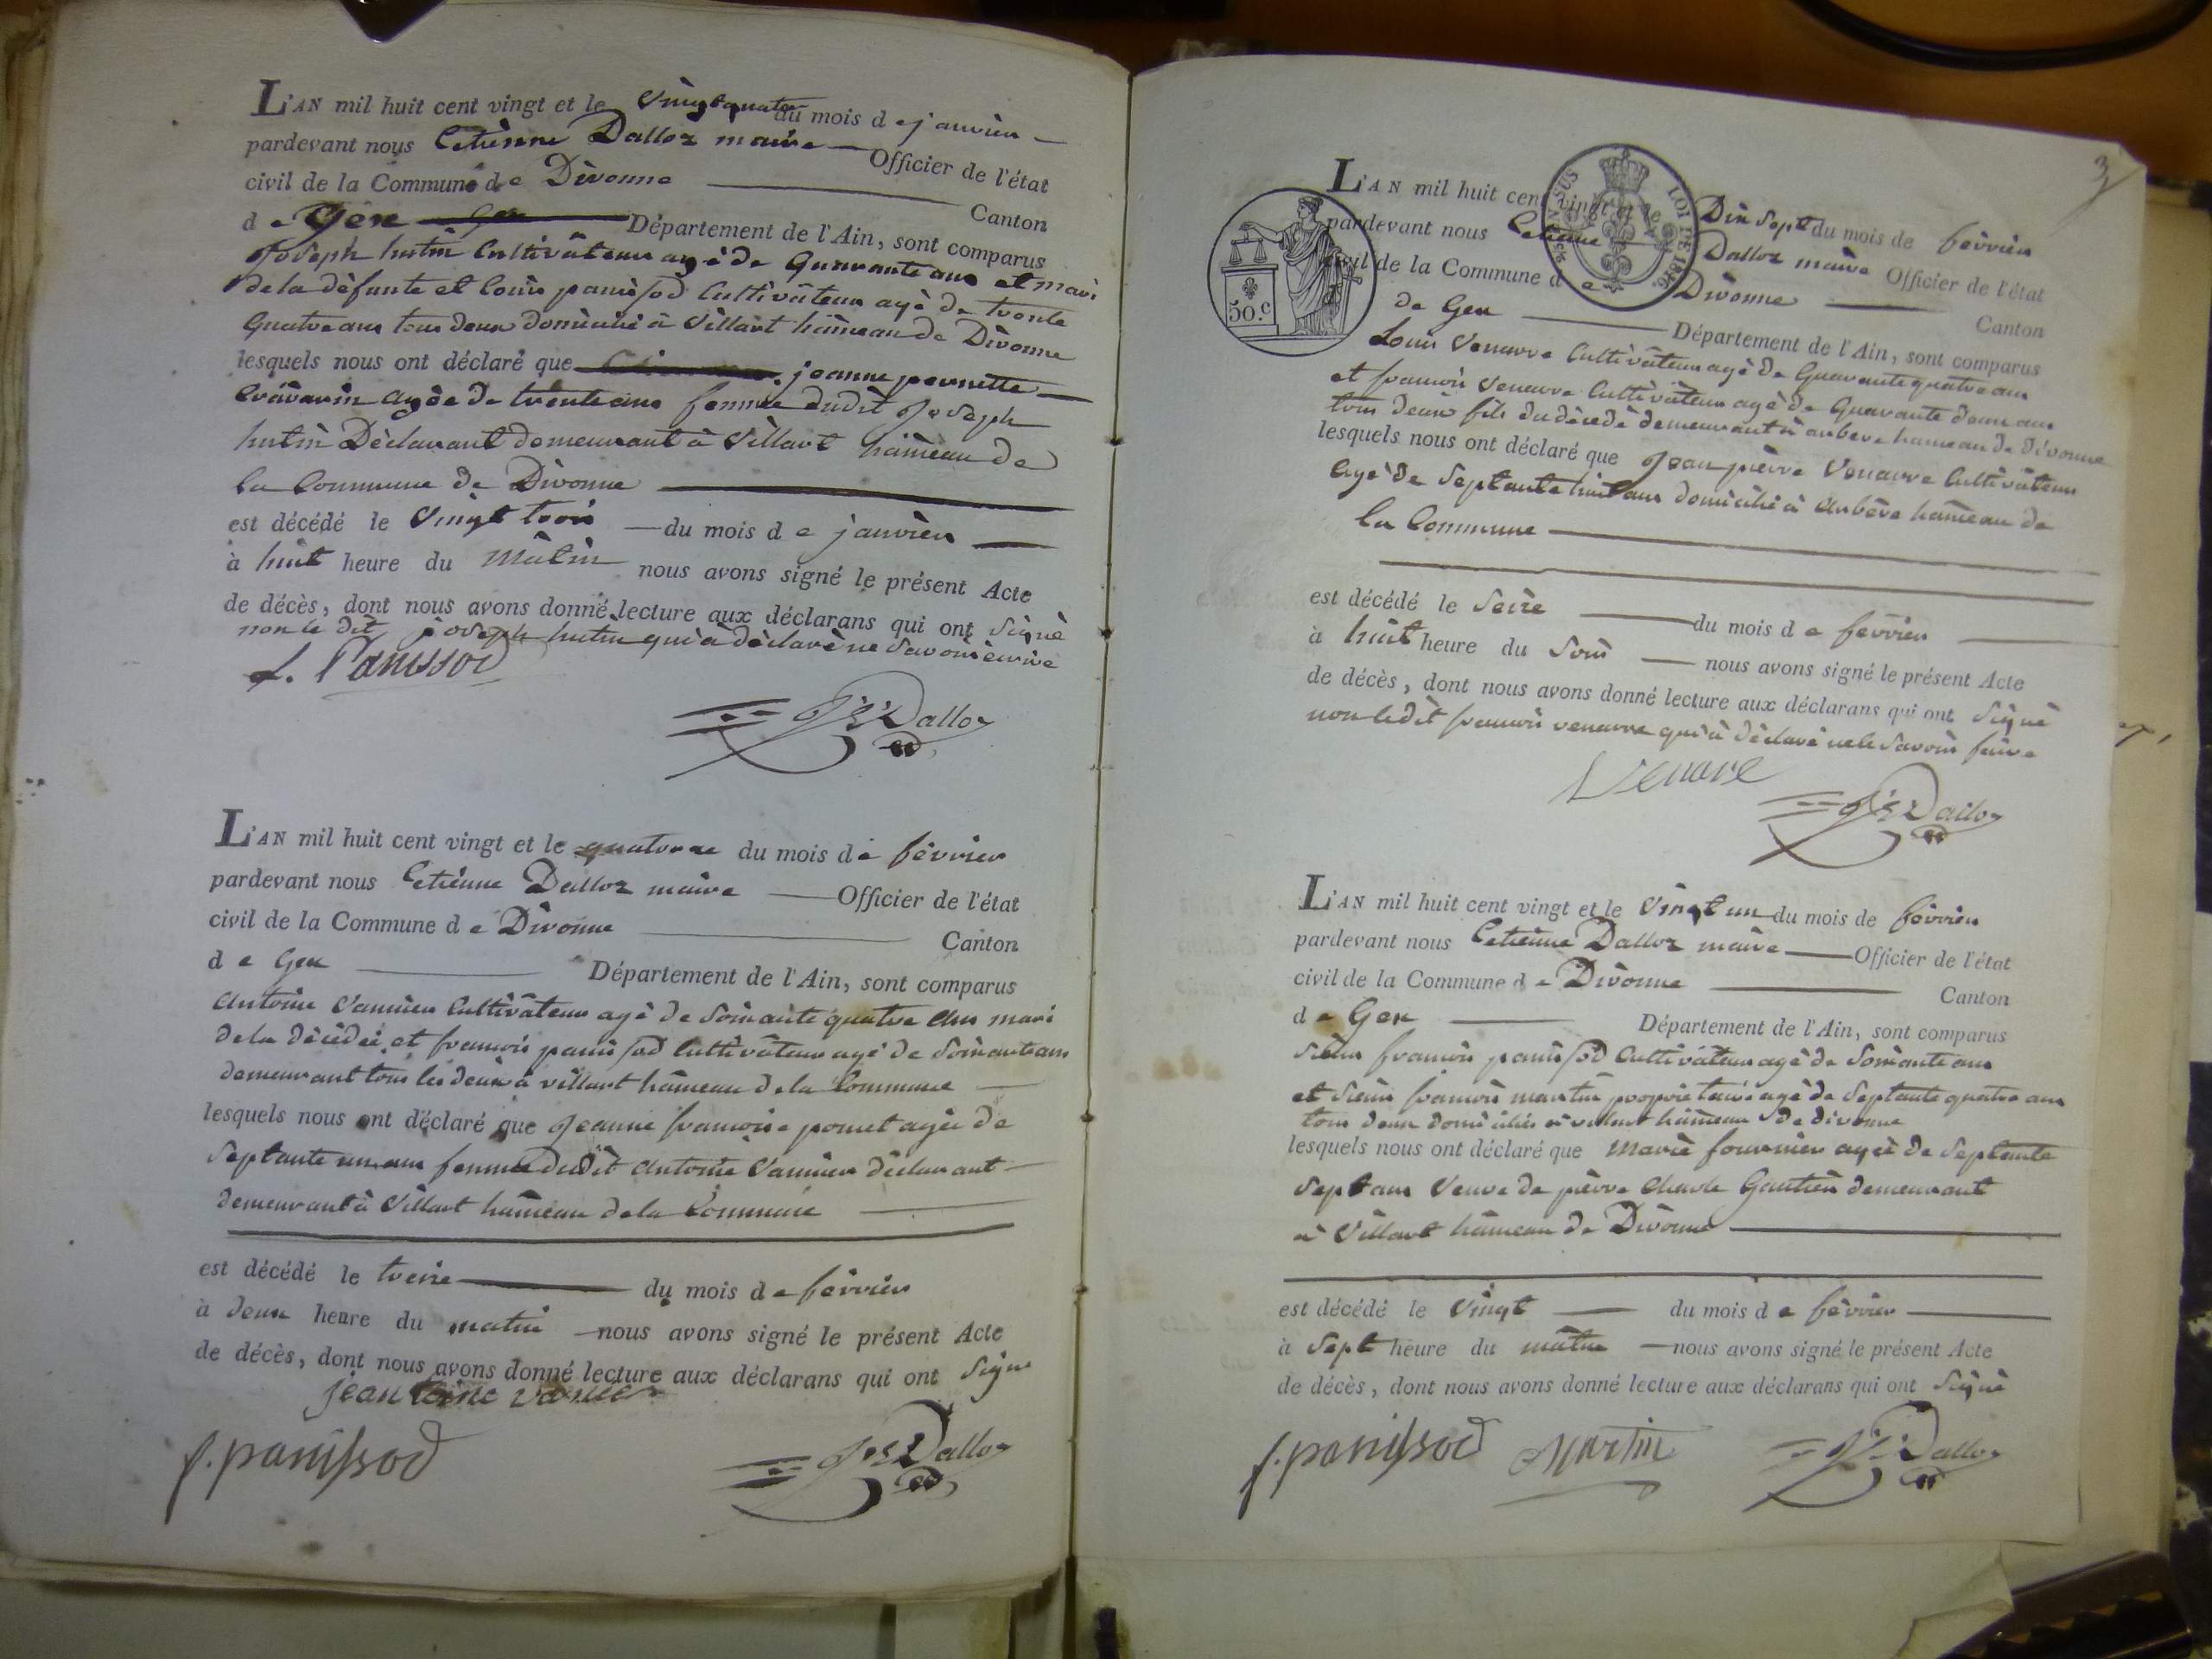 L'AN mil huit cent vingt et le vingt quatre du mois de janvier
pardevant nous Etiènne Dalloz maire Officier de l'état
civil de la Commune de Divonne Canton
de Gex Département de l'Ain, sont comparus
Joseph hutin Cultivâteur agé de Quarante ans et mari
de la défunte et Louis panissod Cultivâteur agé de trente
Quatre ans tous deux domicilié à Villart hâmeau de Divonne
lesquels nous ont déclaré que jeanne pernette
agée de trente ans femme dudit Joseph
hutin Déclarant demeurant à Villart hâmeau de
la Commune de Divonne
est décédé le Vingt trois du mois de janvier
à huit heure du Mâtin nous avons signé le présent Acte
de décès, dont nous avons donné lecture aux déclarans qui ont signé
non le dit joseph hutin qui à déclaré ne savoir ècrire
L. Panissod
Dalloz
L'AN mil huit cent vingt et le quatorze du mois de février
pardevant nous Etiénne Dalloz maire Officier de l'état
civil de la Commune de Divonne Canton
de Gex Département de l'Ain, sont comparus
Antoine Vannier Cultivâteur agé de Soixante quatre Ans mari
de la décédée et francois panissod Cultivâteur agé de Soixante ans
demeurant tous les deux à villart hâmeau de la Commune
lesquels nous ont déclaré que Jeanne francoise poncet agée de
Septante un ans femme dudit Antoine Vannier déclarant
demeurant à Villart hâmeau de la Commune
est décédé le treize du mois de fèvrier
à deux heure du matin nous avons signé le présent Acte
de décès, dont nous avons donné lecture aux déclarans qui ont signé
jean toine vanier
f. panissod
Dalloz
3
SUS
LOI DE 1816
50.c
L'AN mil huit cent vingt et le Dix Sept du mois de fèvrier
pardevant nous Etienne Dalloz maire Officier de l'état
civil de la Commune de Divonne Canton
de Gex Département de l'Ain, sont comparus
Louis Venarre Cultivâteur agé de Quarante quatre ans
et francois Venarre Cultivâteur agé de Quarante deux ans
tous deux fils du décedé demeurant à arbere hameau de Divonne
lesquels nous ont déclaré que Jean pièrre Venarre Cultivâteur
Agé de Septante huit ans domicilié à Arbère hâmeau de
la Commune
est décédé le Seize du mois de fèvrier
à huit heure du Soir nous avons signé le présent Acte
de décès, dont nous avons donné lecture aux déclarans qui ont signé
non ledit francois venarre qui à déclaré ne le savoir faire
Venare
Dalloz
L'AN mil huit cent vingt et le Vingt un du mois de fèvrier
pardevant nous Etienne Dalloz maire Officier de l'état
civil de la Commune de Divonne Canton
de Gex Département de l'Ain, sont comparus
Sieur francois panissod Cultivâteur agé de Soixante ans
et Sieur francois martin proprietaire agé de Septante quatre ans
tous deux domiciliés à villart hâmeau de divonne
lesquels nous ont déclaré que Marie fournier agée de Septante
Sept ans Veuve de pièrre Charle Gautier demeurant
à Villart hâmeau de Divonne
est décédé le Vingt du mois de fèvrier
à Sept heure du mâtin nous avons signé le présent Acte
de décès, dont nous avons donné lecture aux déclarans qui ont signé
f. panissod Martin
Dalloz